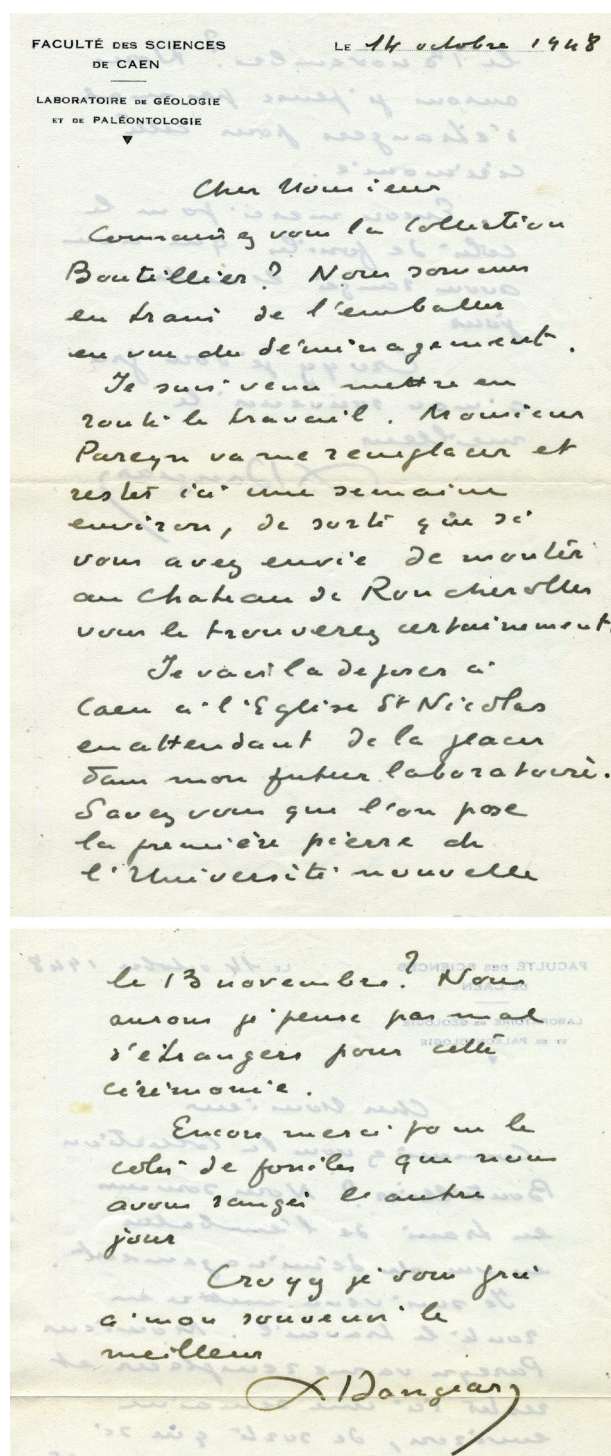 FACULTÉ DES SCIENCES
DE CAEN
LABORATOIRE DE GÉOLOGIE
ET DE PALÉONTOLOGIE
LE 14 octobre 1948
Cher Monsieur
Connaissez vous la Collection
Boutillier? Nous sommes
en train de l'emballer
en vue du déménagement.
Je suis venu mettre en
route le travail. Monsieur
Pareyn va me remplacer et
rester ici une semaine
environ, de sorte que si
vous avez envie de monter
au Chateau de Roncherolles
vous le trouverez certainement.
Je vais la deposer à
Caen à l'Eglise St Nicolas
en attendant de la placer
dans mon futur laboratoire.
Savez vous que l'on pose
la première pierre de
l'Université nouvelle
le 13 novembre? Nous
aurons je pense pas mal
d'étrangers pour cette
cérémonie.
Encore merci pour le
colis de fossiles que nous
avons rangé l'autre
jour
Croyez je vous prie
à mon souvenir le
meilleur
L Dangeard